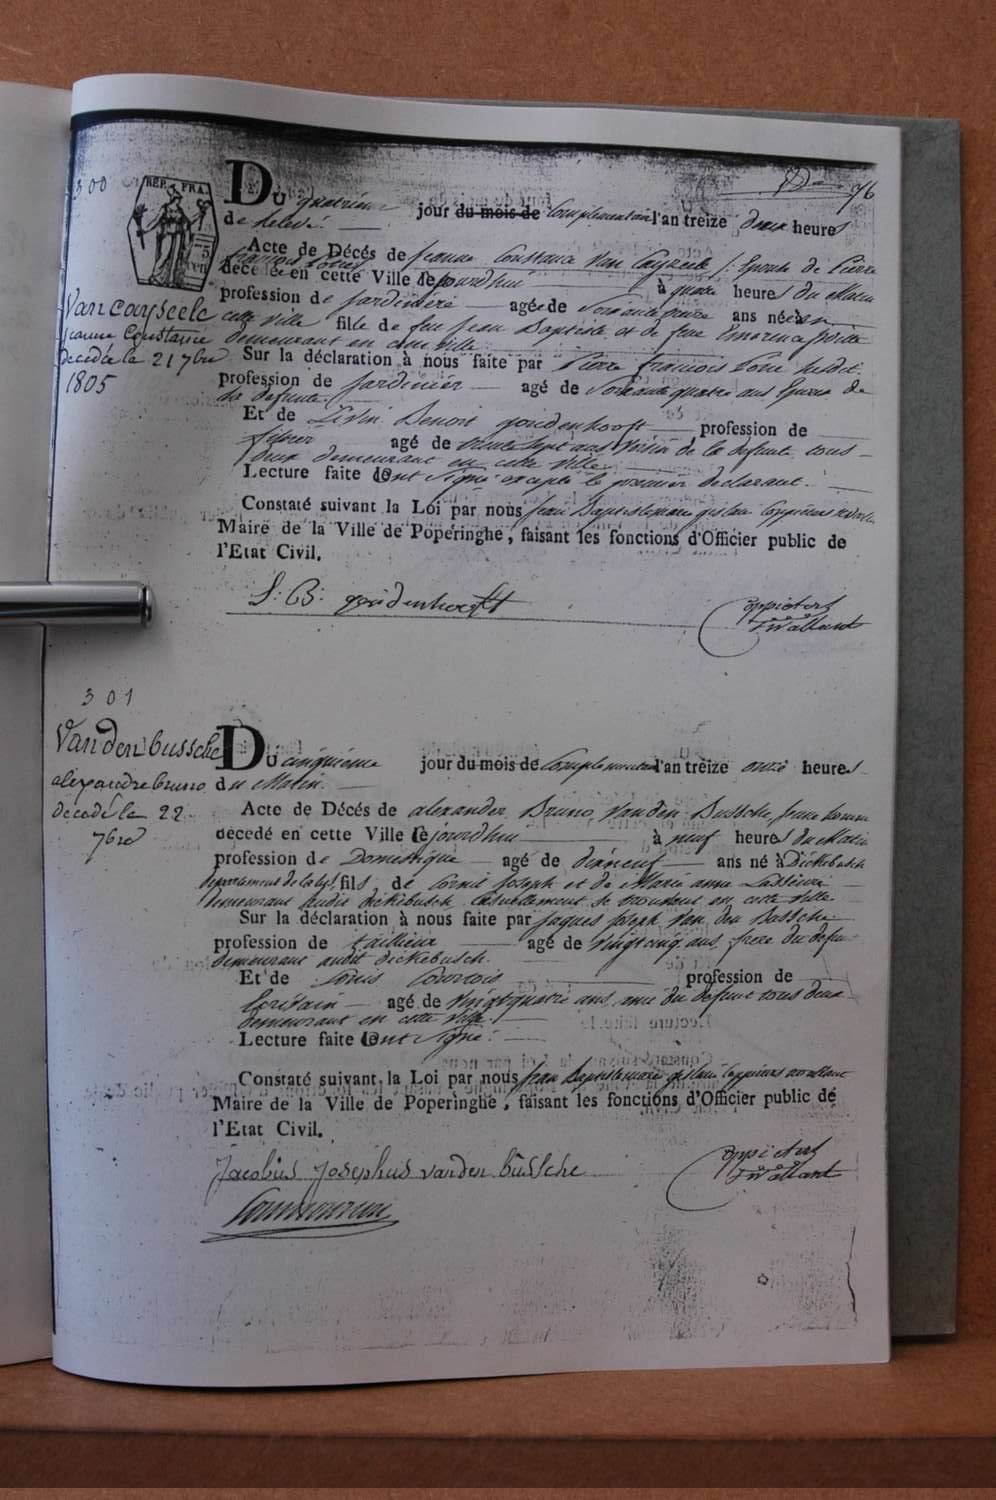 76
300
REP. FRA.
75
Cen
Du quatrieme jour du mois de Complementaire l'an treize deux heures
de relevé.
Acte de Décés de jeanne Constance Van Cayseele Epouse de Pierre
françois Lorre
decédée en cette Ville cejourdhui à quatre heures du Matin
profession de jardiniere agée de Soixante ans née en
cette Ville fille de feu jean Baptiste et de feue
demeurant en cette Ville
Vancayseele
jeanne Constance
decedée le 21 7bre
1805
Sur la déclaration à nous faite par Pierre françois Lorre susdit
profession de jardinier agé de Soixante quatre ans Epoux de
la defunte.
Et de Livin Benoit goudenhooft profession de
fripier agé de trente sept ans voisin de la defunte tous
deux demeurant en cette Ville
Lecture faite ont signé excepté le premier declarant.
Constaté suivant la Loi par nous jean Baptiste marie gislain
Maire de la Ville de Poperinghe, faisant les fonctions d'Officier public de
l'Etat Civil.
L: B: goudenhooft
301
Vanden bussche
alexandre bruno
décedé le 22
7bre
Du cinquième jour du mois de Complementaire l'an treize onze heures
du Matin.
Acte de Décés de alexander Bruno Vanden Bussche jeune homme
décedé en cette Ville cejourdhui à neuf heures du Matin
profession de Domestique agé de dixneuf ans né à Dickebusch
departement de la Lys, fils de Cornil joseph et de Marie anne
demeurant audit dickebusch Casuellement se trouvant en cette Ville
Sur la déclaration à nous faite par jaques joseph Van den Bussche
profession de tailleur agé de vingtcinq ans, frere du defunt
demeurant audit dickebusch.
Et de Louis Courtois profession de
Ecrivain agé de vingtquatre ans, ami du defunt tous deux
demeurant en cette Ville.
Lecture faite ont signé.
Constaté suivant la Loi par nous jean Baptiste marie gislain
Maire de la Ville de Poperinghe, faisant les fonctions d'Officier public de
l'Etat Civil.
Jacobus Josephus vanden bussche